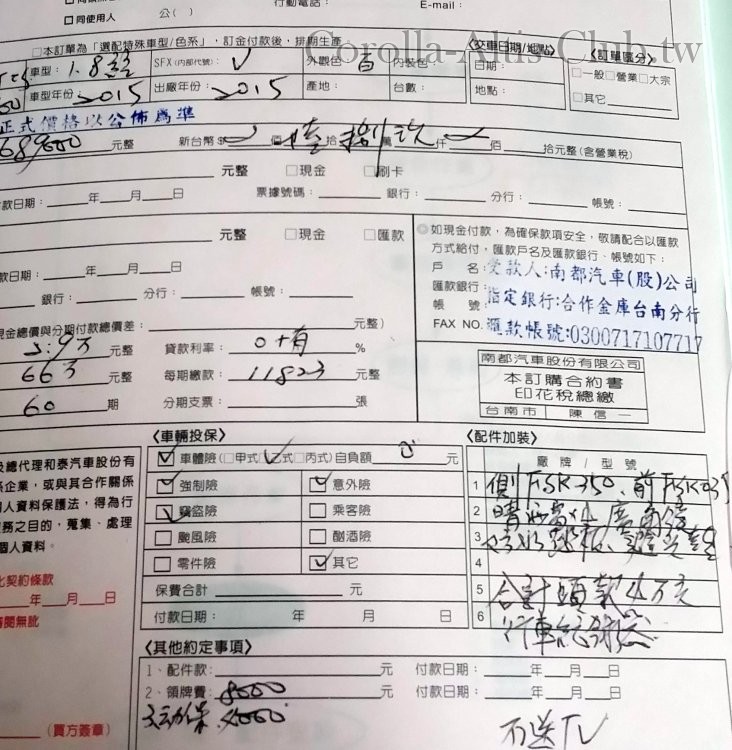 行動電話：
E-mail：
□同使用人
公（ ）
Corolla-Altis Club.tw
□本訂單為「選配特殊車型/色系」，訂金付款後，排期生產
〈交車日期/地點〉
〈訂單區分〉
車型：1.8
SFX(內部代號)：V
外觀色：白
內裝色：
日期：
□一般□營業□大宗
車型年份 2015
出廠年份：2015
產地：
台數：
地點：
□其它
正式價格以公佈為準
689000 元整
新台幣$ 佰 陸拾 捌萬 玖仟 佰 拾元整(含營業稅)
元整 □現金 □刷卡
款日期： 年 月 日
票據號碼： 銀行： 分行： 帳號：
元整 □現金 □匯款
款日期： 年 月 日
銀行： 分行： 帳號：
◎如現金付款，為確保款項安全，敬請配合以匯款
方式給付，匯款戶名及匯款銀行、帳號如下：
戶 名：受款人:南都汽車(股)公司
匯款銀行：指定銀行:合作金庫台南分行
帳 號
FAX NO. 匯款帳號:0300717107717
現金總價與分期付款總價差： 元整）
2.9万 元整
貸款利率： 0+有 %
66万 元整
每期繳款： 11823 元整
60 期
分期支票： 張
南都汽車股份有限公司
本訂購合約書
印花稅總繳
台南市 陳信一
〈車輛投保〉
車體險(□甲式 乙式□丙式)自負額 0 元
強制險
意外險
竊盜險
乘客險
颱風險
酗酒險
零件險
其它
保費合計 元
付款日期： 年 月 日
〈配件加裝〉
廠牌/型號
1 側FSK350、前FSK
2 晴雨窗
3
4
5 合計頭款4万元
6 行車紀錄器
及總代理和泰汽車股份有
係企業，或與其合作關係
個人資料保護法，得為行
務之目的，蒐集、處理
個人資料。
比契約條款
年 月 日
閱無訛
(買方簽章)
〈其他約定事項〉
1、配件款： 元 付款日期： 年 月 日
2、領牌費：8500 元 付款日期： 年 月 日
不送TV